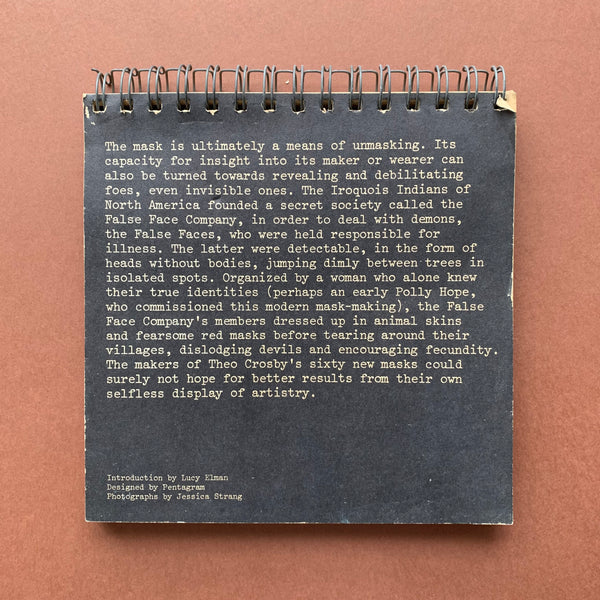 The mask is ultimately a means of unmasking. Its
capacity for insight into its maker or wearer can
also be turned towards revealing and debilitating
foes, even invisible ones. The Iroquois Indians of
North America founded a secret society called the
False Face Company, in order to deal with demons,
the False Faces, who were held responsible for
illness. The latter were detectable, in the form of
heads without bodies, jumping dimly between trees in
isolated spots. Organized by a woman who alone knew
their true identities (perhaps an early Polly Hope,
who commissioned this modern mask-making), the False
Face Company's members dressed up in animal skins
and fearsome red masks before tearing around their
villages, dislodging devils and encouraging fecundity.
The makers of Theo Crosby's sixty new masks could
surely not hope for better results from their own
selfless display of artistry.
Introduction by Lucy Elman
Designed by Pentagram
Photographs by Jessica Strang